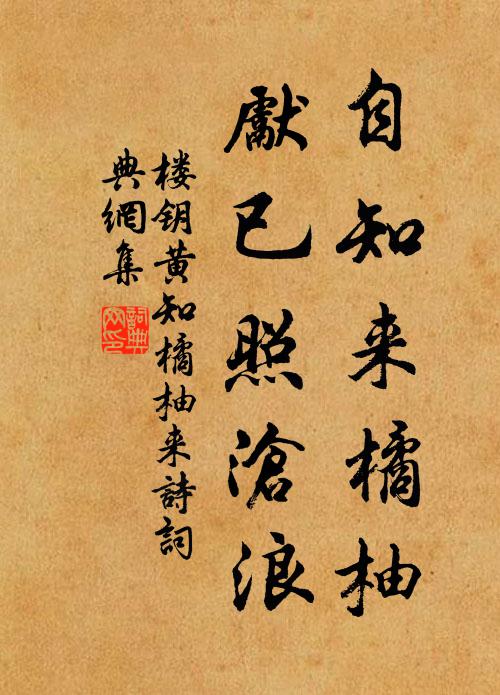 自知来橘柚
獻已照滄浪
楼钥黄知橘柚来詩詞
典網集
詞典
网印